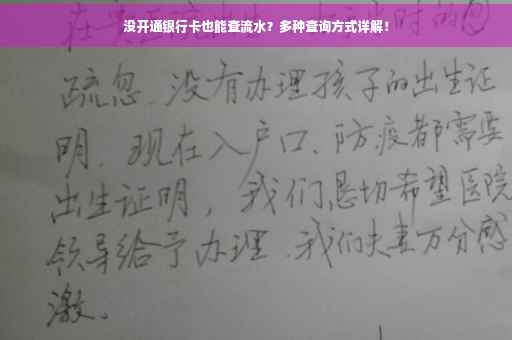 没开通银行卡也能查流水？多种查询方式详解！
时的
疏忽、没有办理孩子的出生证
明、现在入户口、防疫都需要
出生证明，我们恳切希望医院
领导给予办理、我们夫妻万分感
激。